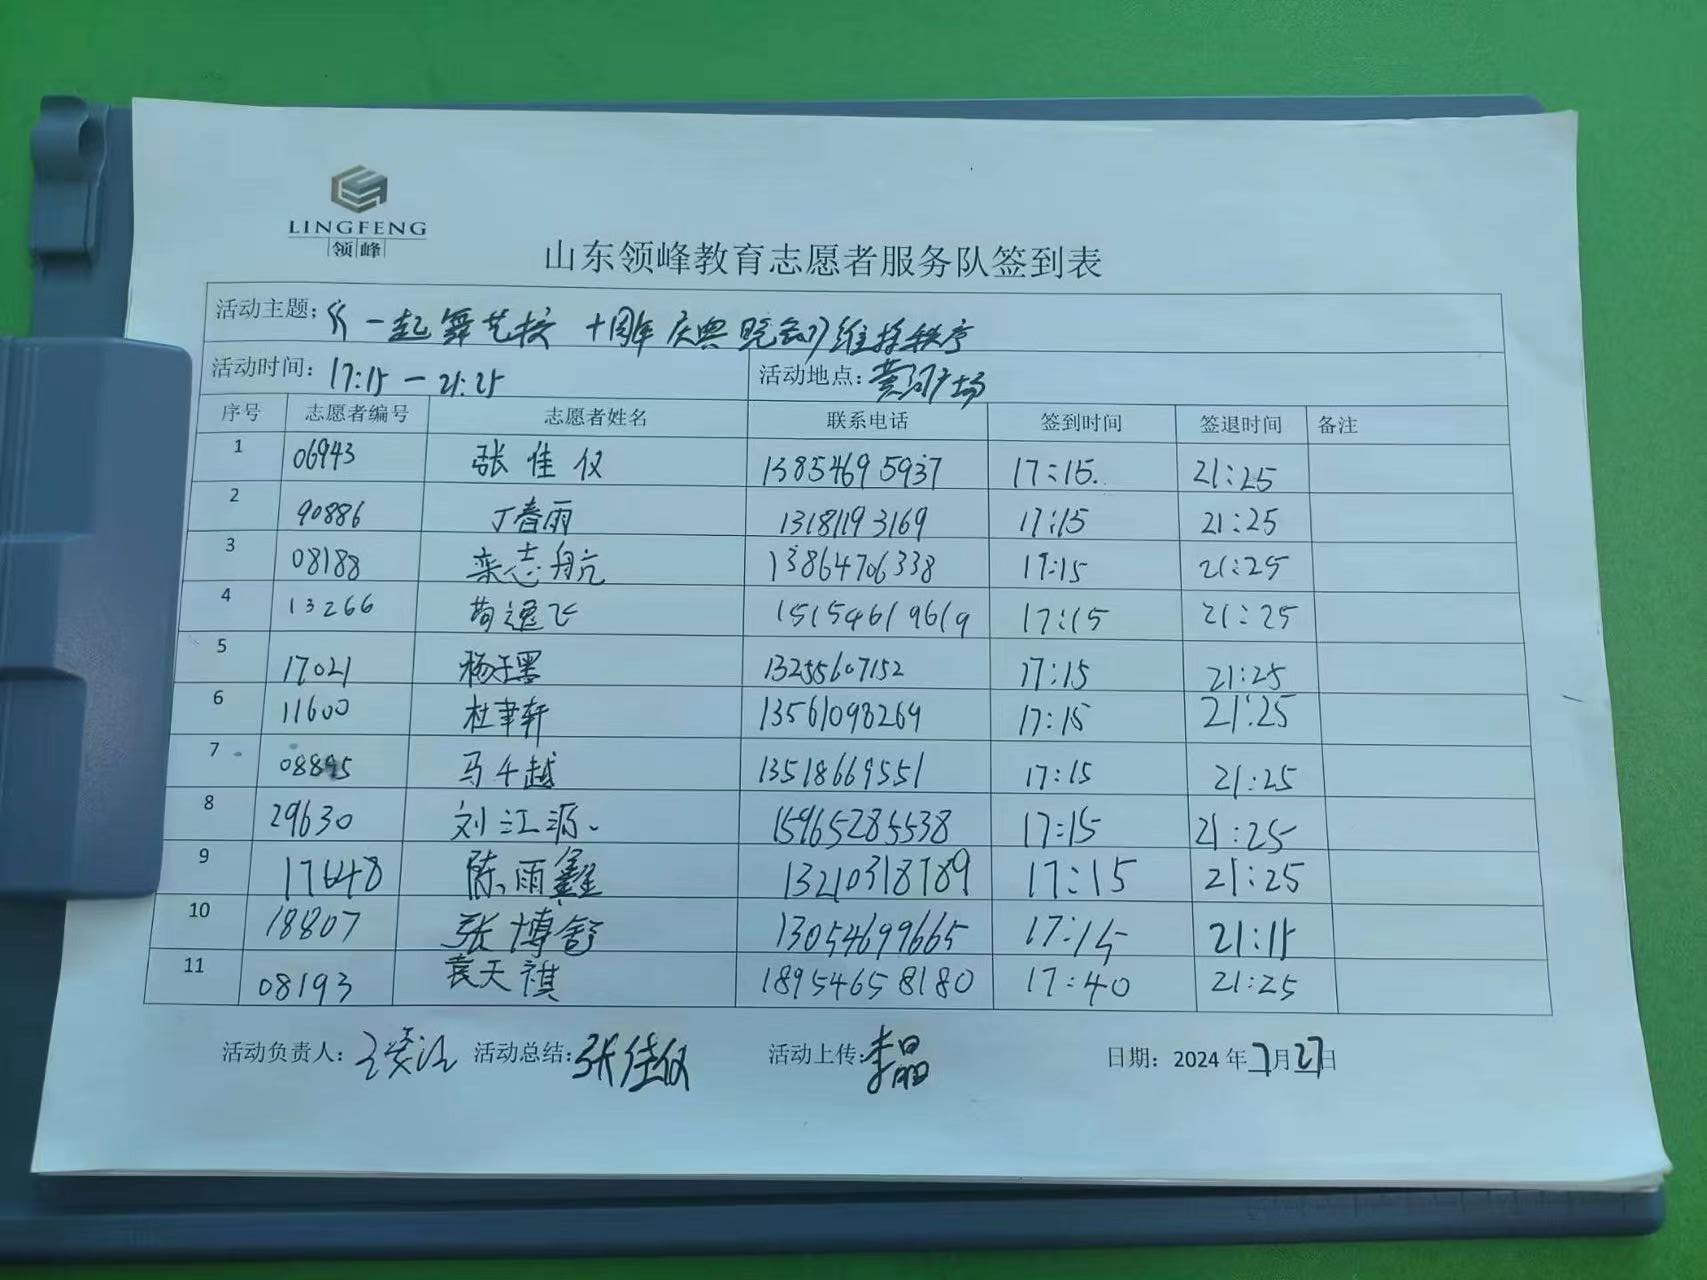 LINGFENG
领峰
山东领峰教育志愿者服务队签到表
活动主题：《一起舞艺校 十周年庆典晚会》维持秩序
活动时间：17:15 — 21:25 活动地点：黄河广场
序号 志愿者编号 志愿者姓名 联系电话 签到时间 签退时间 备注
1 06943 张佳仪 13854695937 17:15. 21:25
2 90886 丁春雨 13181193169 17:15 21:25
3 08188 栾志航 13864706338 17:15 21:25
4 13266 苟逸飞 15154619619 17:15 21:25
5 17021 杨 13255607152 17:15 21:25
6 11600 杜聿轩 13561098269 17:15 21:25
7 08895 马千越 13518669551 17:15 21:25
8 29630 刘江源. 15965285538 17:15 21:25
9 17648 陈雨鑫 13210318789 17:15 21:25
10 18807 张博舒 13054699665 17:15 21:15
11 08193 袁天祺 18954658180 17:40 21:25
活动负责人： 活动总结：张佳仪 活动上传：李晶 日期：2024年7月27日